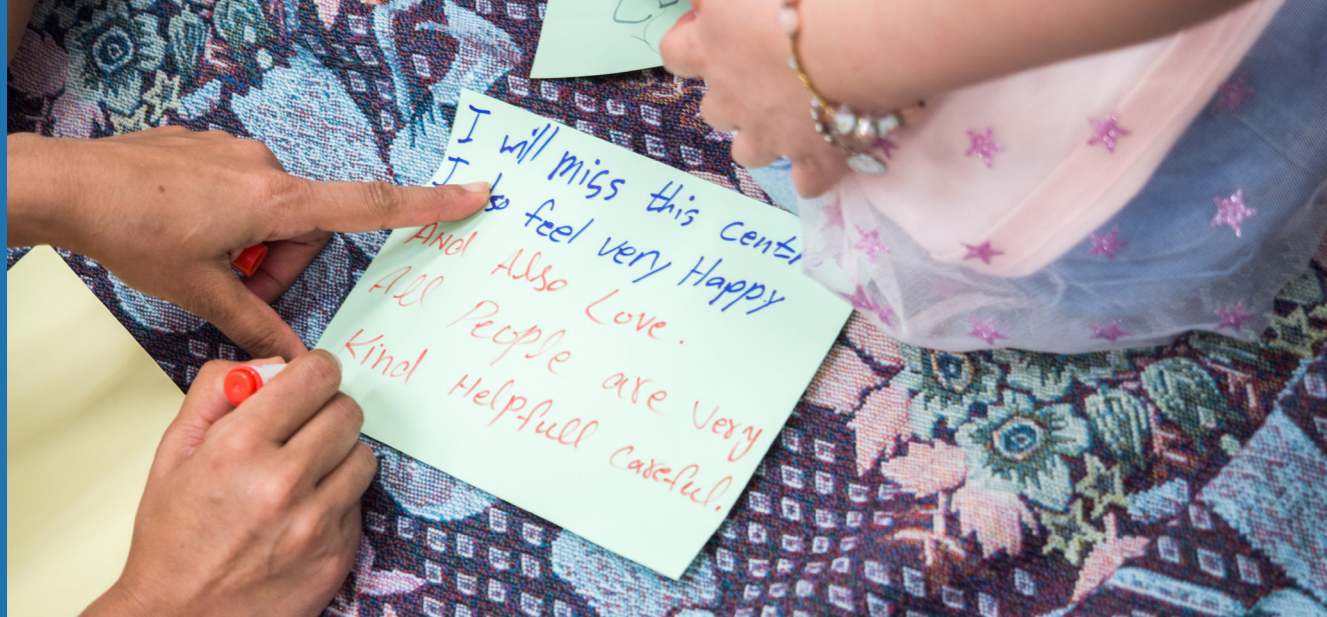 I will miss this
I feel very Happy
And Also Love.
All People are very
Kind Helpfull careful.